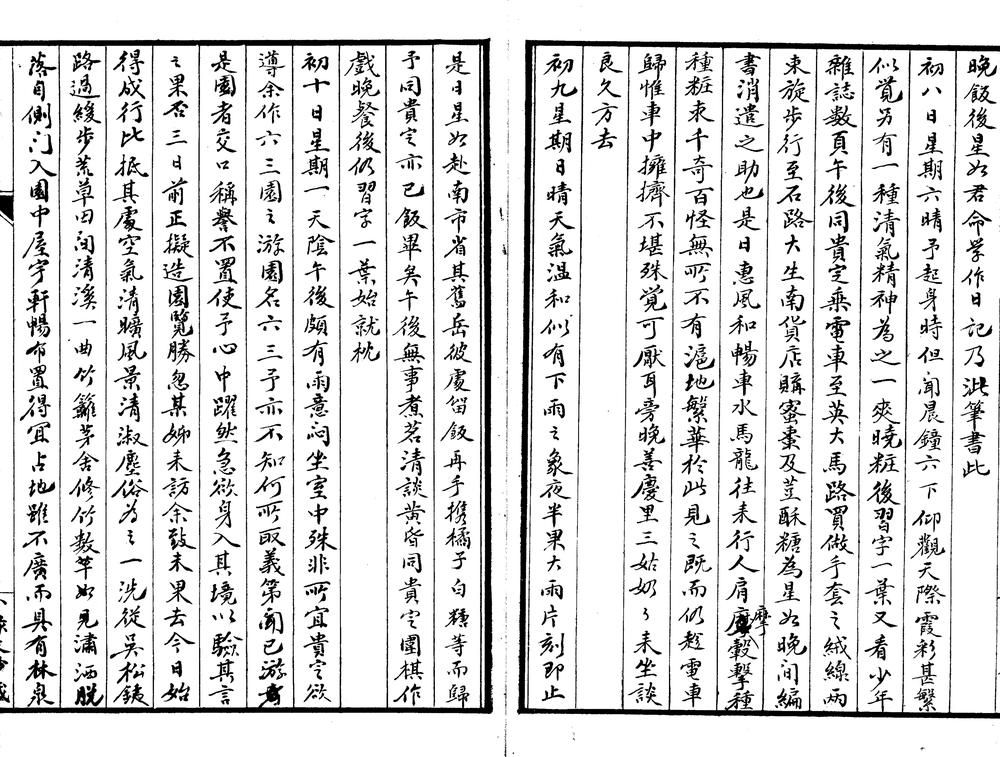 晚飯後星如君命學作日記乃泚筆書此
初八日星期六晴予起身時但聞晨鐘六下仰觀天際霞彩甚繁
似覺另有一種清氣精神為之一爽曉粧後習字一葉又看少年
雜誌數頁午後同貴定乘電車至英大馬路買做手套之絨線兩
束旋步行至石路大生南貨店購蜜棗及荳酥糖為星如晚間編
書消遣之助也是日惠風和暢車水馬龍往来行人肩摩轂擊種
種粧束千奇百怪無所不有滬地繁華於此見之既而仍趁電車
歸惟車中擁擠不堪殊覺可厭耳旁晚善慶里三姑奶々来坐談
良久方去
初九星期日晴天氣温和似有下雨之象夜半果大雨片刻即止
是日星如赴南市省其舊岳彼處留飯再手携橘子白糖等而歸
予同貴定亦已飯畢矣午後無事煮茗清談黄昏同貴定圍棋作
戲晚餐後仍習字一葉始就枕
初十日星期一天陰午後頗有雨意悶坐室中殊非所宜貴定欲
導余作六三園之游園名六三予亦不知何所取義第聞已游
是園者交口稱譽不置使予心中躍然急欲身入其境以驗其言
之果否三日前正擬造園覽勝忽某姊来訪余致未果去今日始
得成行比抵其處空氣清曠風景清淑塵俗為之一洗從吳松鉄
路過緩步荒草田間清溪一曲竹籬茅舍修竹數竿如見瀟洒脱
落自側门入園中屋宇軒暢布置得宜占地雖不廣而具有林泉